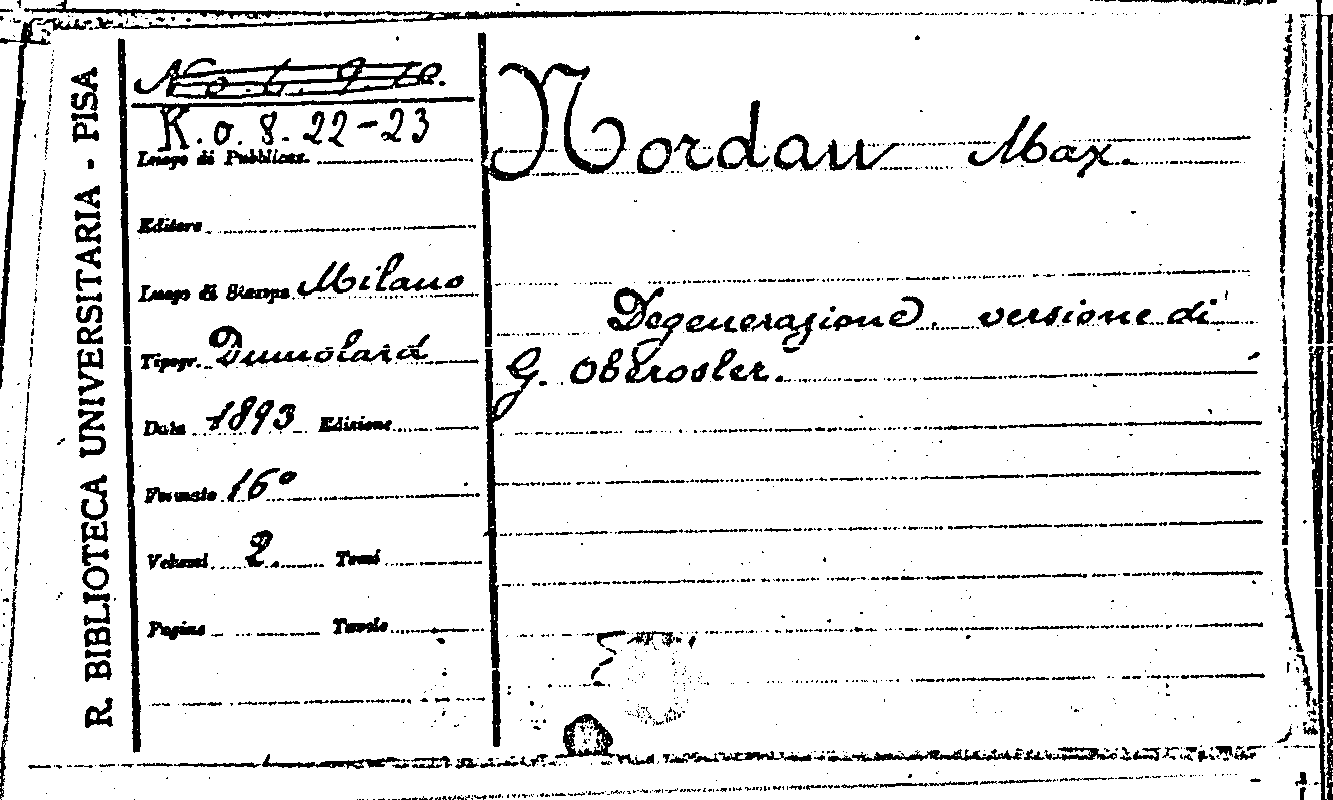 R. BIBLIOTECA UNIVERSITARIA - PISA
K. o. 8. 22-23
Luogo di Pubblicaz.
Editore
Luogo di Stampa Milano
Tipogr. Dumolard
Data 1893 Edizione
Formato 16°
Volumi 2. Tomi
Pagine Tavole
Nordau Max.
Degenerazione. versione di
G. Oberosler.